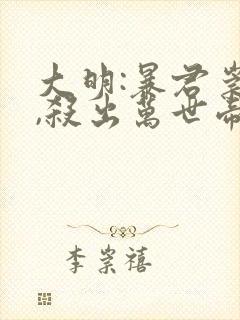 大明:暴君崇
,殺出萬世帝
李崇禧